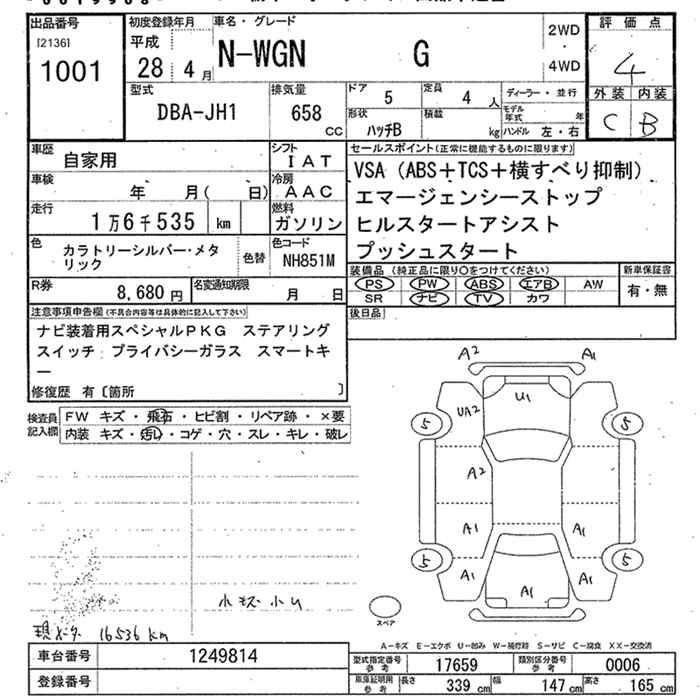 出品番号 初度登録年月 車名・グレード 2WD 評価点
[2136] 平成 N-WGN G 4
1001 28 4月 4WD
型式 排気量 ドア 5 定員 4人 ディーラー・並行 外装 内装
DBA-JH1 658 CC 形状 ハッチB 積載 kg モデル年式 年 C B
ハンドル 左・右
車歴 自家用 シフト IAT セールスポイント(正常に機能するものに限ります)
車検 年 月( 日) 冷房 AAC VSA(ABS+TCS+横すべり抑制)
走行 1万6千535 km 燃料 ガソリン エマージェンシーストップ
ヒルスタートアシスト
色 カラトリーシルバー・メタリック 色替 色コード NH851M プッシュスタート
R券 8,680円 名変通知期限 月 日 装備品(純正品に限り○をつけてください) 新車保証書
PS PW ABS エアB AW 有・無
SR ナビ TV カワ
注意事項申告欄(不具合内容等は具体的に記入して下さい) 後日品
ナビ装着用スペシャルPKG ステアリング
スイッチ プライバシーガラス スマートキ
ー
修復歴 有〔箇所 〕
検査員記入欄 FW キズ・飛石・ヒビ割・リペア跡・×要
内装 キズ・汚れ・コゲ・穴・スレ・キレ・破レ
A2 A1
U1
UA2
5 5
A2
A1 A1
5 5
A1 A1 A1
スペア
小キズ小U
現メータ 16536km
A-キズ E-エクボ U-凹み W-補修跡 S-サビ C-腐食 XX-交換済
車台番号 1249814 型式指定番号 参考 17659 類別区分番号 参考 0006
登録番号 車庫証明用 参考 長さ 339cm 幅 147cm 高さ 165cm